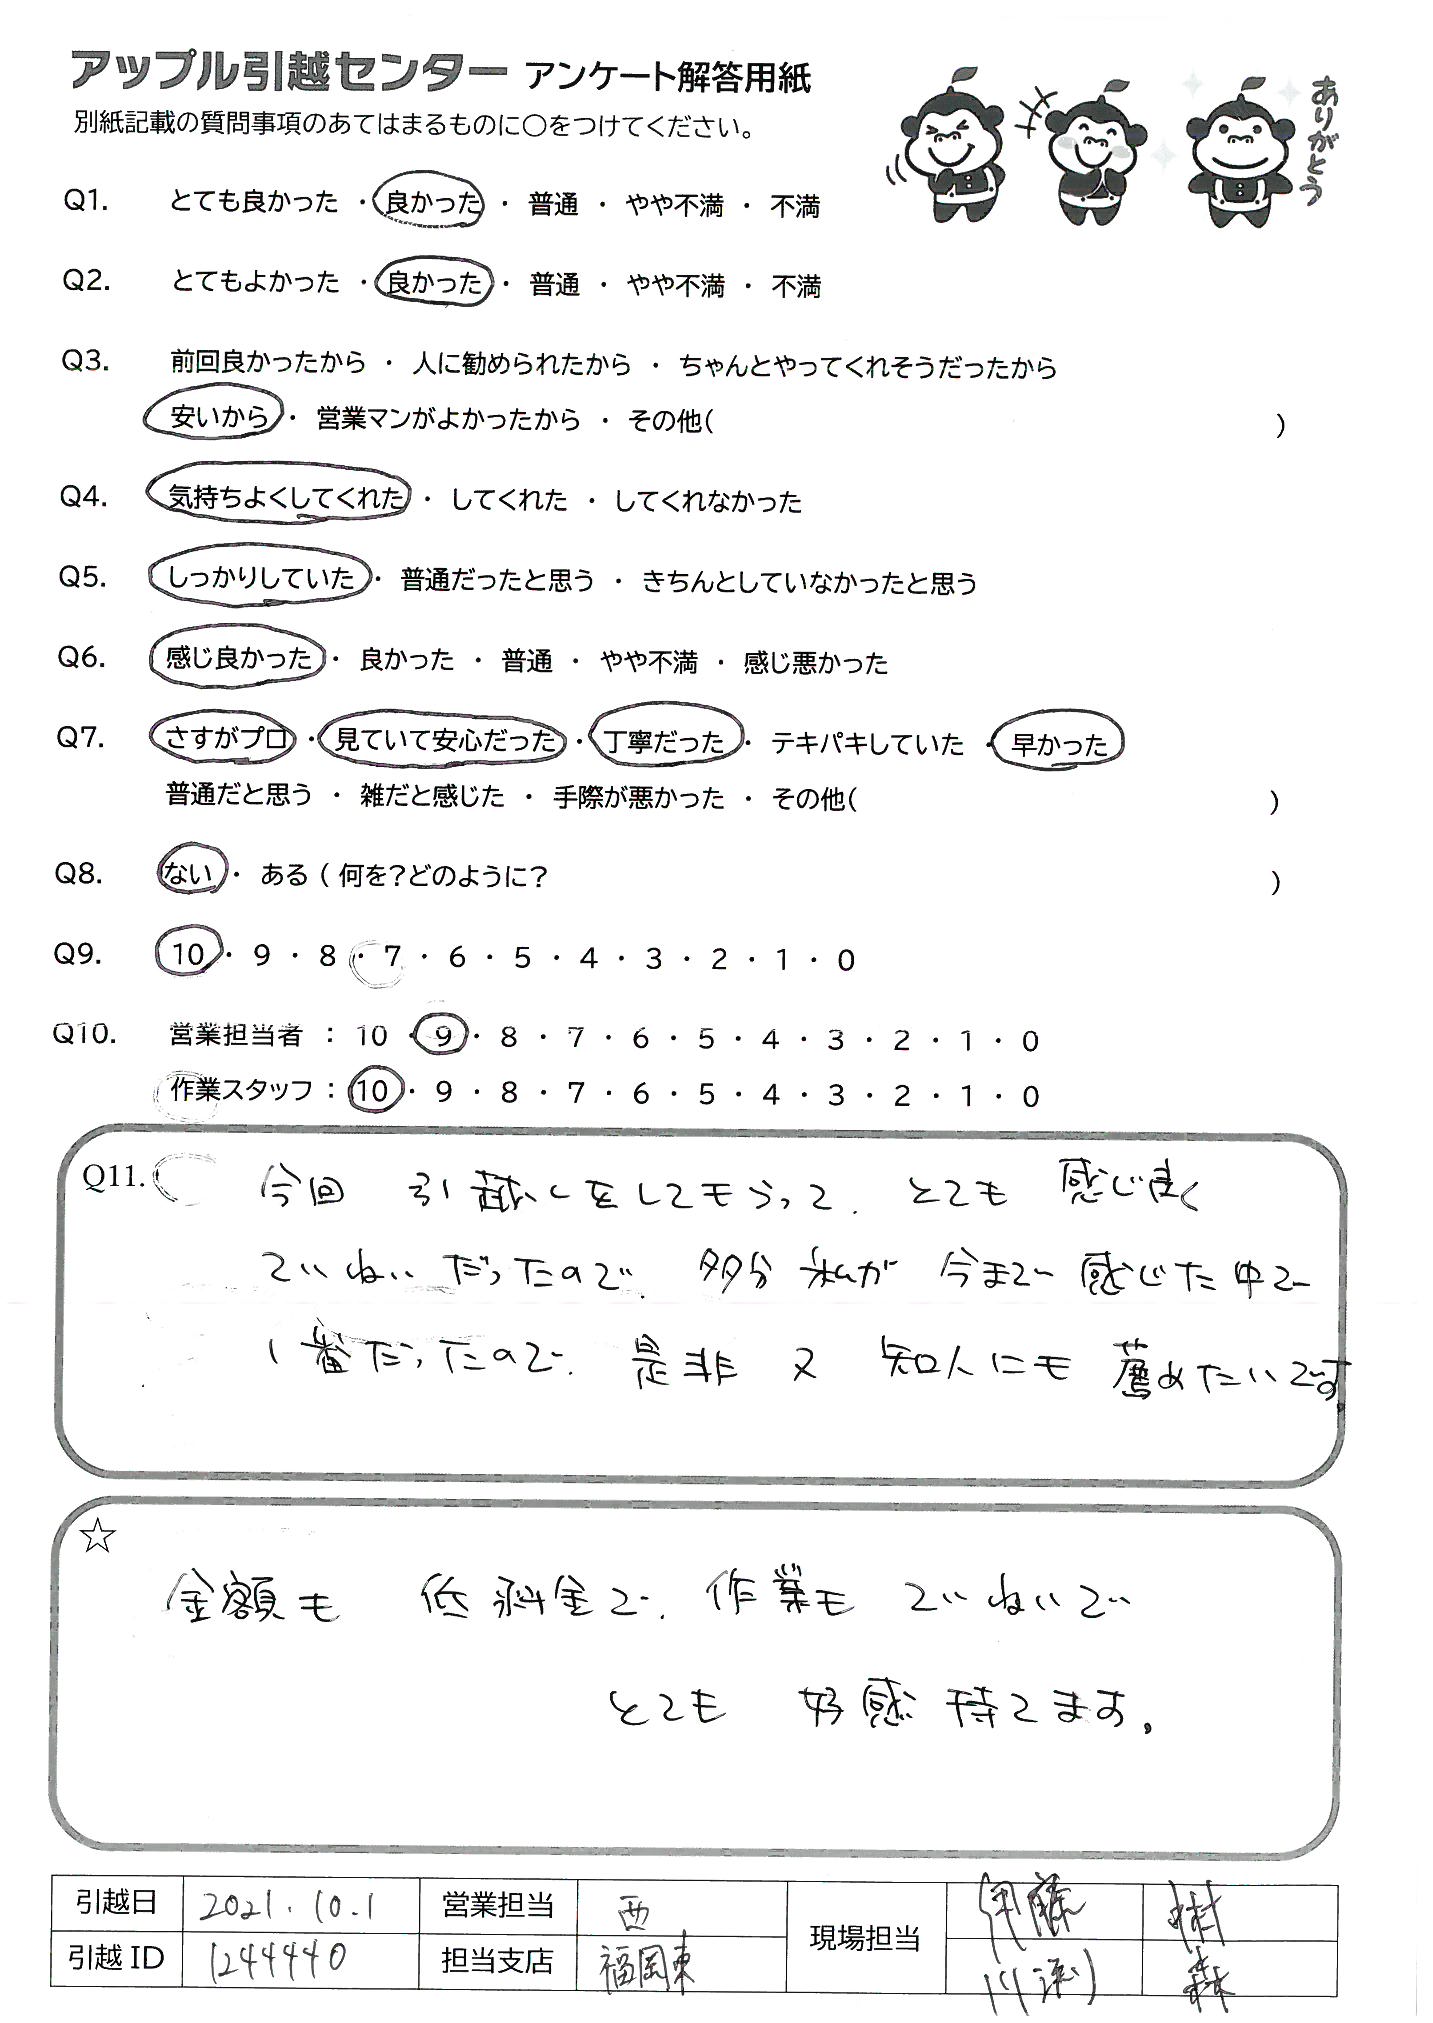 アップル引越センター アンケート解答用紙
別紙記載の質問事項のあてはまるものに〇をつけてください。
ありがとう
Q1. とても良かった ・ 良かった ・ 普通 ・ やや不満 ・ 不満
Q2. とてもよかった ・ 良かった ・ 普通 ・ やや不満 ・ 不満
Q3. 前回良かったから ・ 人に勧められたから ・ ちゃんとやってくれそうだったから
安いから ・ 営業マンがよかったから ・ その他( )
Q4. 気持ちよくしてくれた ・ してくれた ・ してくれなかった
Q5. しっかりしていた ・ 普通だったと思う ・ きちんとしていなかったと思う
Q6. 感じ良かった ・ 良かった ・ 普通 ・ やや不満 ・ 感じ悪かった
Q7. さすがプロ ・ 見ていて安心だった ・ 丁寧だった ・ テキパキしていた ・ 早かった
普通だと思う ・ 雑だと感じた ・ 手際が悪かった ・ その他( )
Q8. ない ・ ある ( 何を?どのように? )
Q9. 10 ・ 9 ・ 8 ・ 7 ・ 6 ・ 5 ・ 4 ・ 3 ・ 2 ・ 1 ・ 0
Q10. 営業担当者 : 10 ・ 9 ・ 8 ・ 7 ・ 6 ・ 5 ・ 4 ・ 3 ・ 2 ・ 1 ・ 0
作業スタッフ : 10 ・ 9 ・ 8 ・ 7 ・ 6 ・ 5 ・ 4 ・ 3 ・ 2 ・ 1 ・ 0
Q11. 今回 引越しをしてもらって、とても 感じ良く
ていねいだったので、多分 私が 今まで 感じた中で
1番だったので、是非 又 知人にも 薦めたいです。
☆
金額も 低料金で、作業も ていねいで
とても 好感 持てます。
引越日 2021.10.1 営業担当 西 現場担当 伊藤 樹
引越ID 1244440 担当支店 福岡東 森